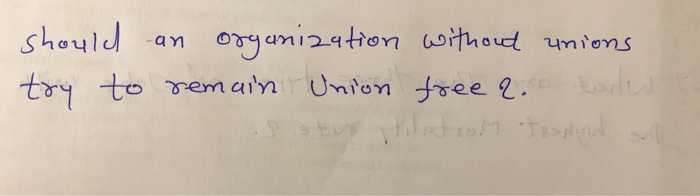 should an organization without unions
try to remain Union free ?.